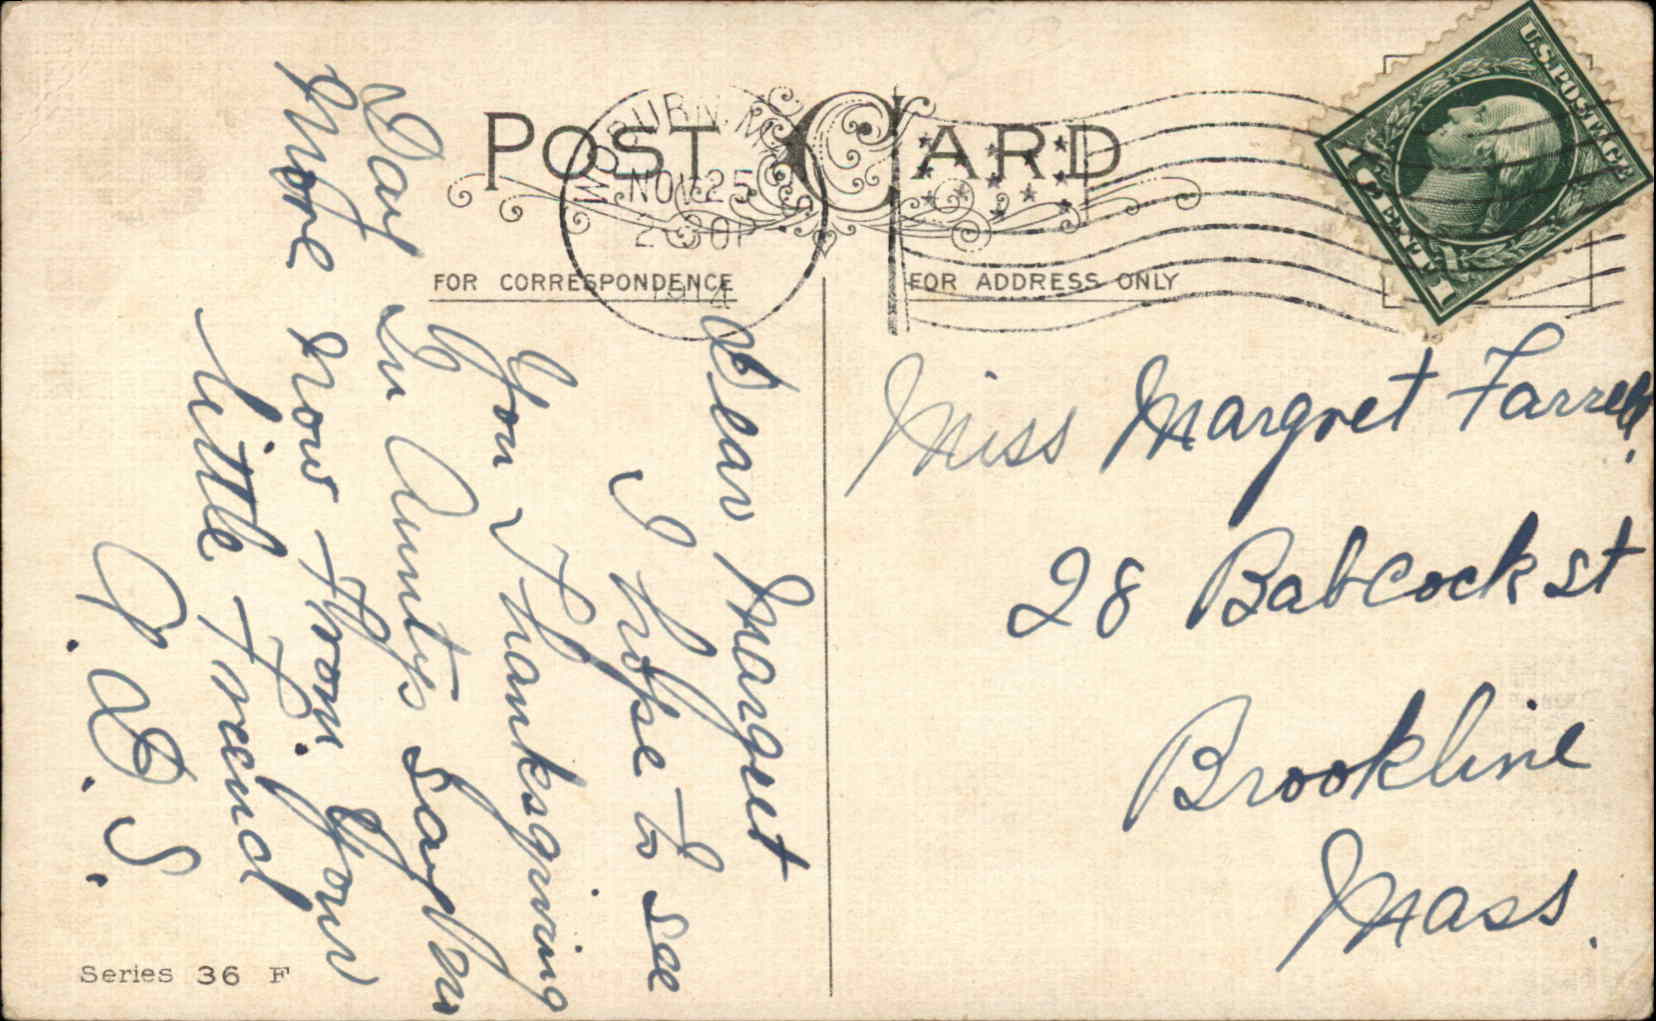 POST CARD
WOBURN, MASS.
NOV 25
2 30 P
1914
FOR CORRESPONDENCE
FOR ADDRESS ONLY
U.S. POSTAGE
1 CENT 1
Dear Marguet
I hope to see
You Thanksgiving
Day In Aunty's say
More Now From Your
Little Freind
P. D. S.
Miss Margret Farrell.
28 Babcock st
Brookline
Mass.
Series 36 F